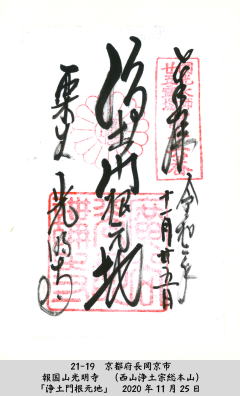 奉拝
令和二年
十一月廿五日
浄土門根元地
粟生 光明寺
21-19 京都府長岡京市
報国山光明寺 (西山浄土宗総本山)
「浄土門根元地」 2020年11月25日